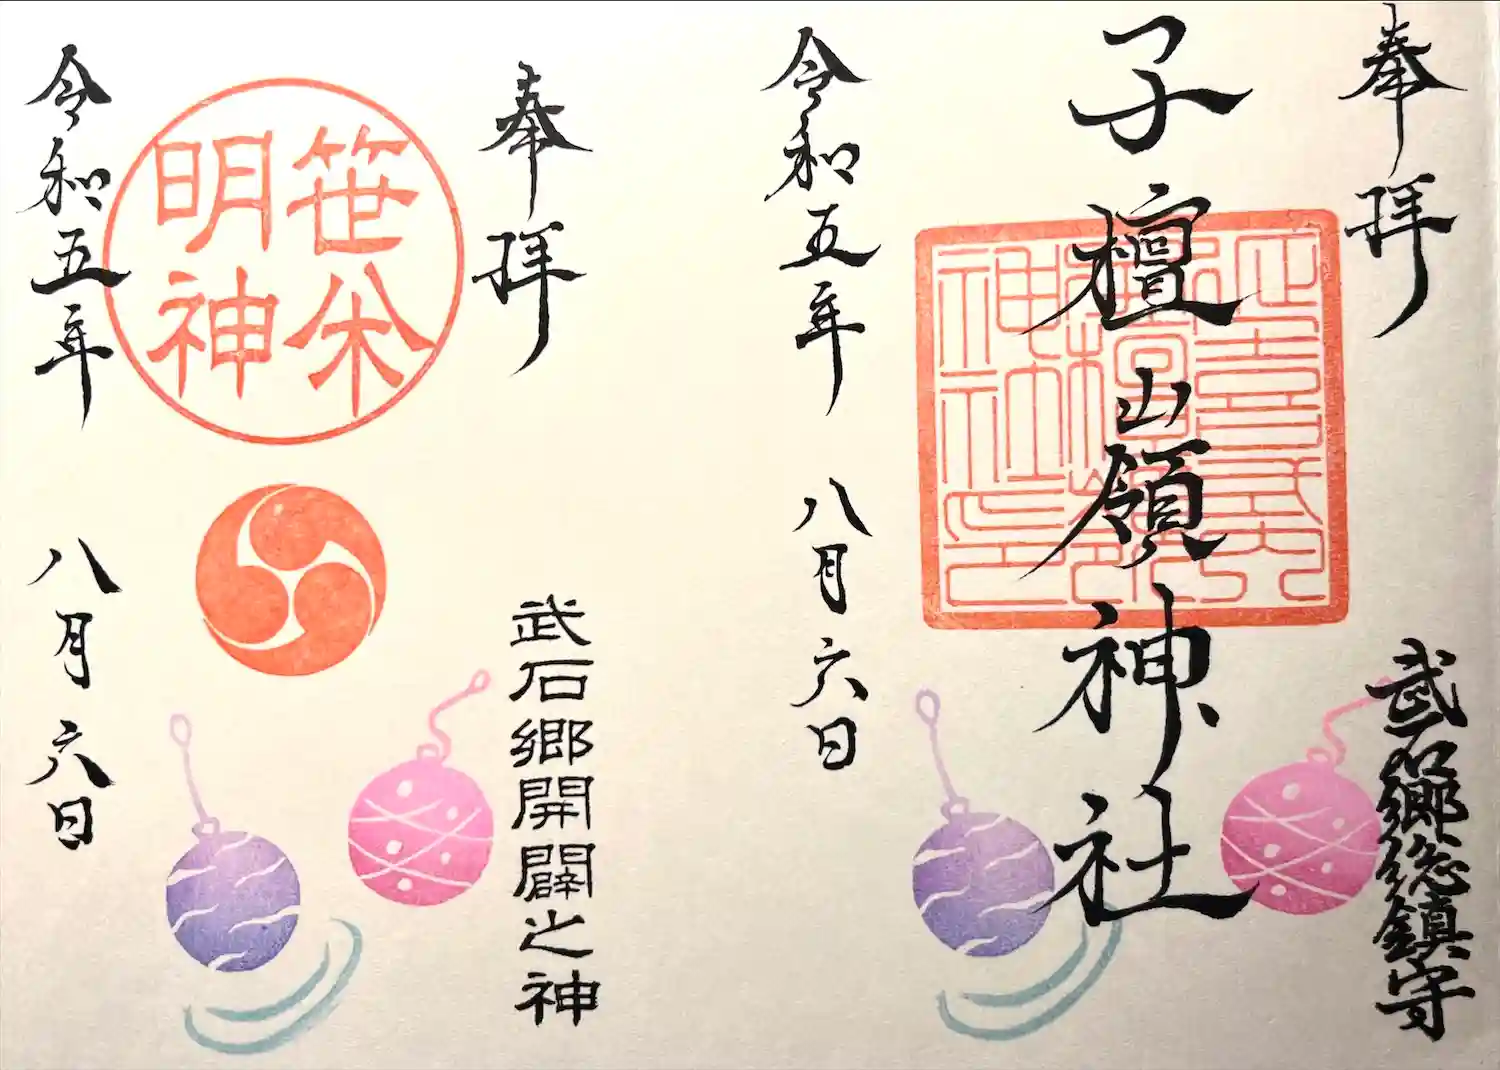 奉拝
武石郷総鎮守
子檀嶺神社
延喜式内
神社之印
令和五年 八月六日
奉拝
武石郷開闢之神
笹
明神
令和五年 八月六日